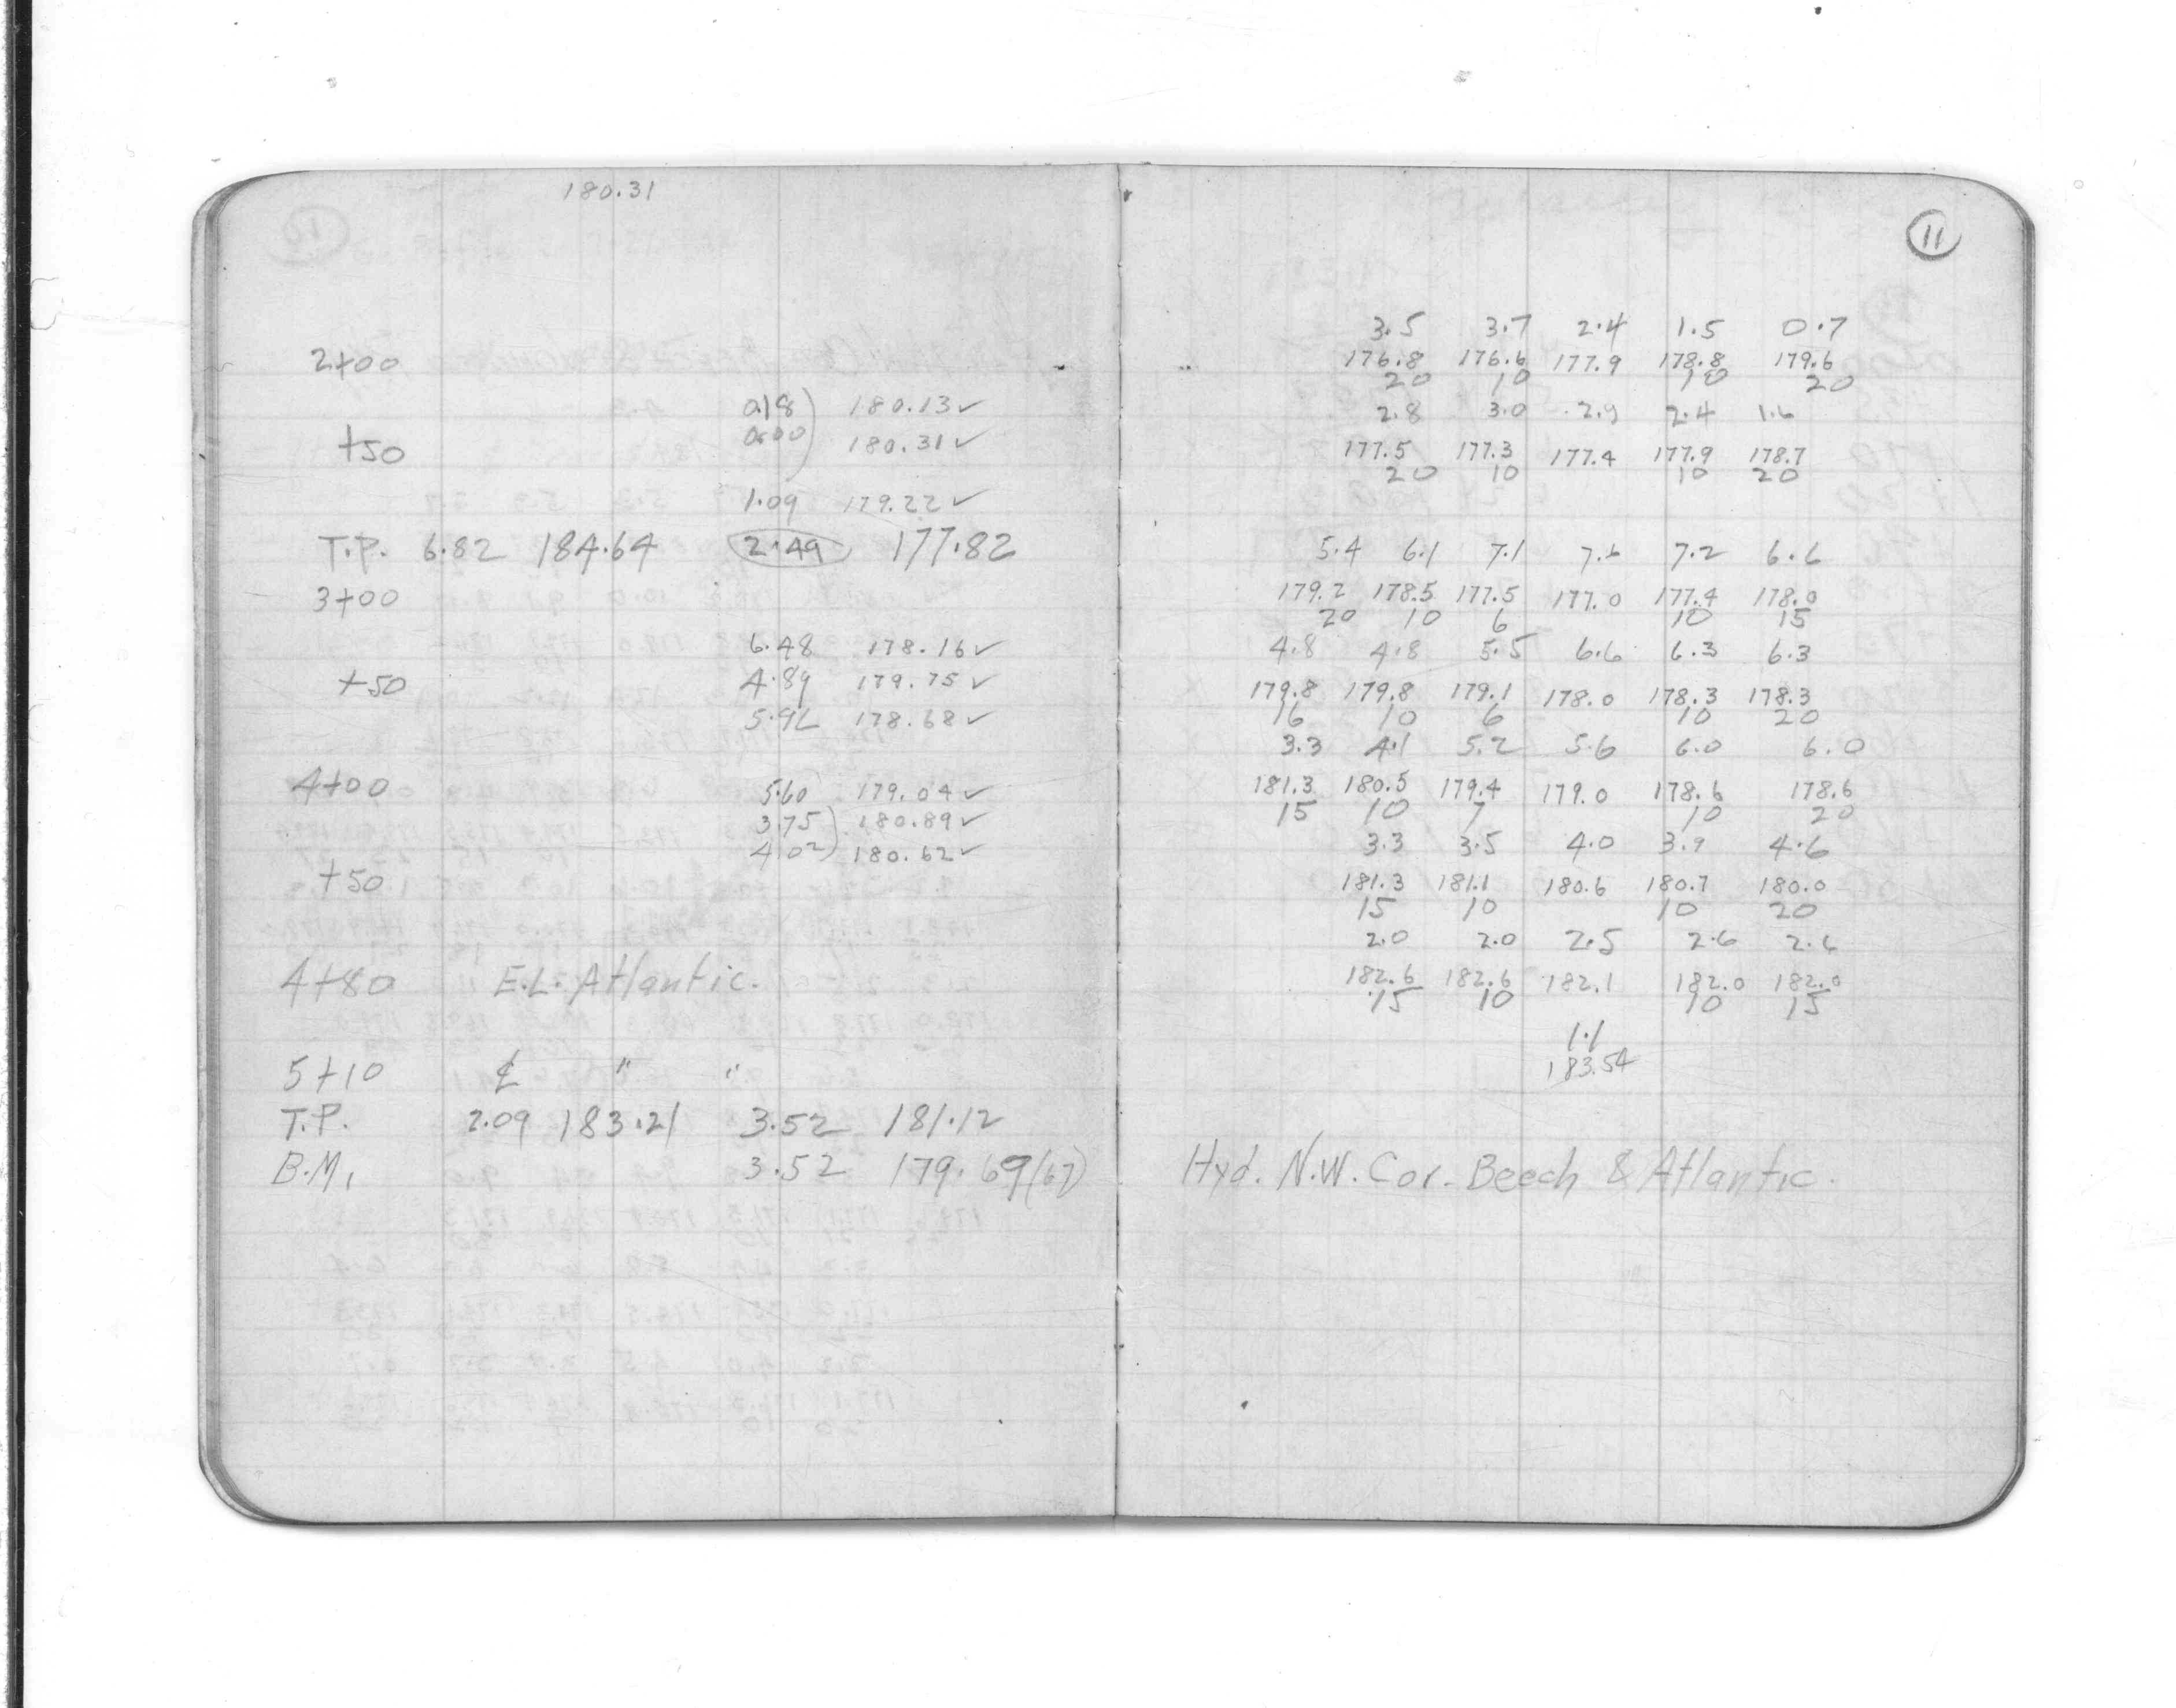 180.31
2+00
0.18 180.13✓
+50 0.00 180.31✓
1.09 179.22✓
T.P. 6.82 184.64 2.49 177.82
3+00
6.48 178.16✓
+50 4.89 179.75✓
5.96 178.68✓
4+00 5.60 179.04✓
3.75 180.89✓
4.02 180.62✓
+50
4+80 E.L. Atlantic.
5+10 ℄ " "
T.P. 2.09 183.21 3.52 181.12
B.M. 3.52 179.69(67)
11
3.5 3.7 2.4 1.5 0.7
176.8 176.6 177.9 178.8 179.6
20 10 10 20
2.8 3.0 2.9 2.4 1.6
177.5 177.3 177.4 177.9 178.7
20 10 10 20
5.4 6.1 7.1 7.6 7.2 6.6
179.2 178.5 177.5 177.0 177.4 178.0
20 10 6 10 15
4.8 4.8 5.5 6.6 6.3 6.3
179.8 179.8 179.1 178.0 178.3 178.3
16 10 6 10 20
3.3 4.1 5.2 5.6 6.0 6.0
181.3 180.5 179.4 179.0 178.6 178.6
15 10 7 10 20
3.3 3.5 4.0 3.9 4.6
181.3 181.1 180.6 180.7 180.0
15 10 10 20
2.0 2.0 2.5 2.6 2.6
182.6 182.6 182.1 182.0 182.0
15 10 10 15
1.1
183.54
Hyd. N.W. Cor. Beech & Atlantic.